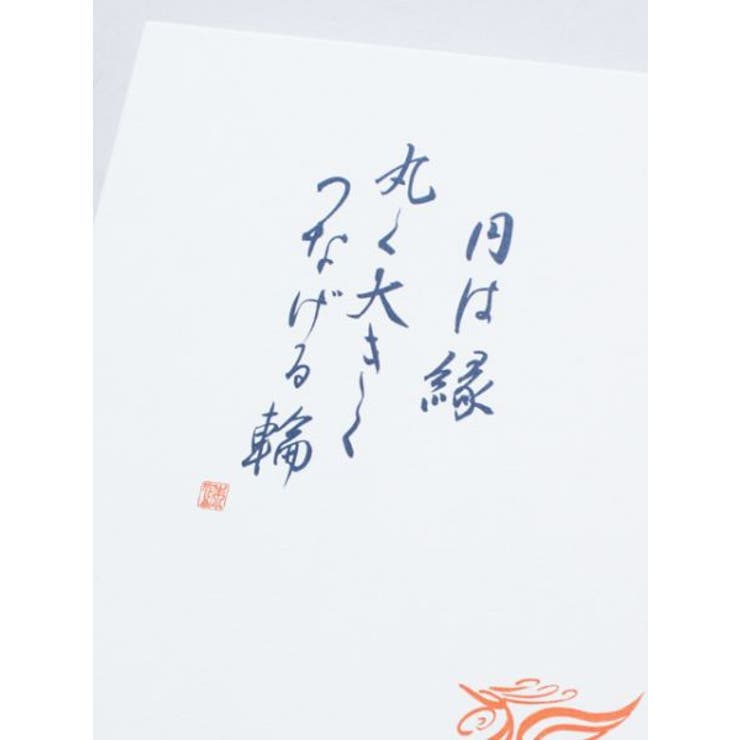 円は縁
丸く大きく
つなげる輪